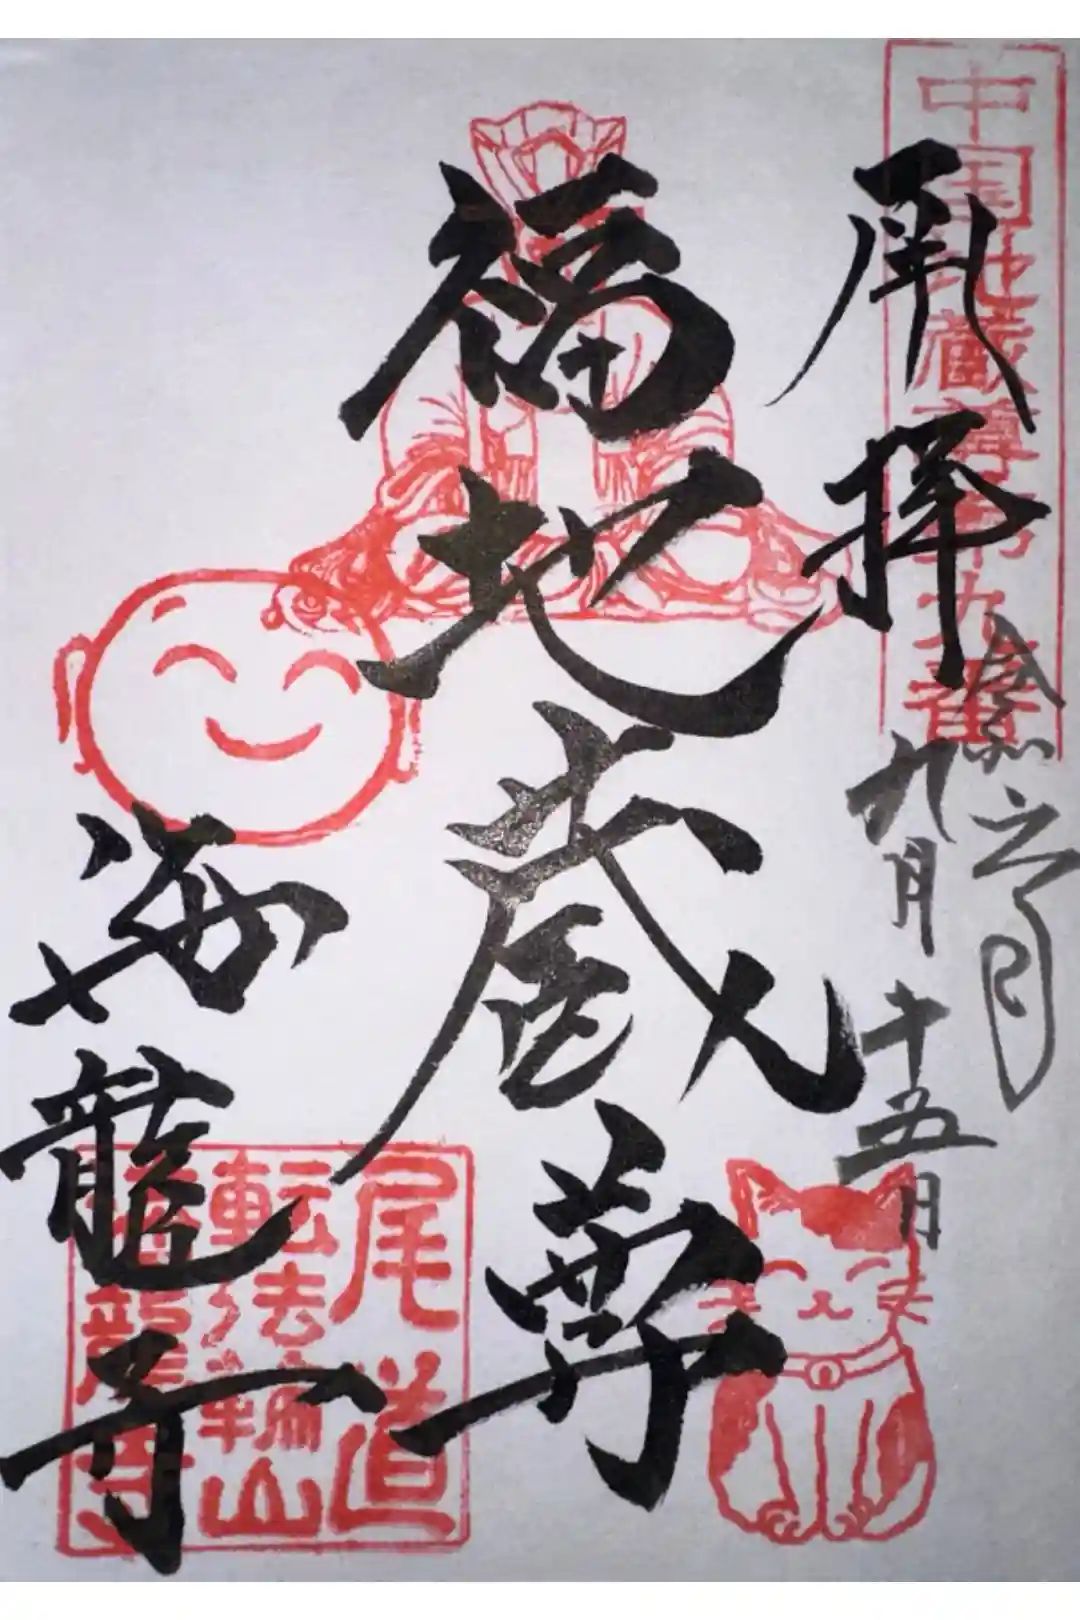 中国地蔵尊第九番
奉拝
令和 年
九月十五日
福地蔵尊
海龍寺
尾道
転法輪山
海龍寺